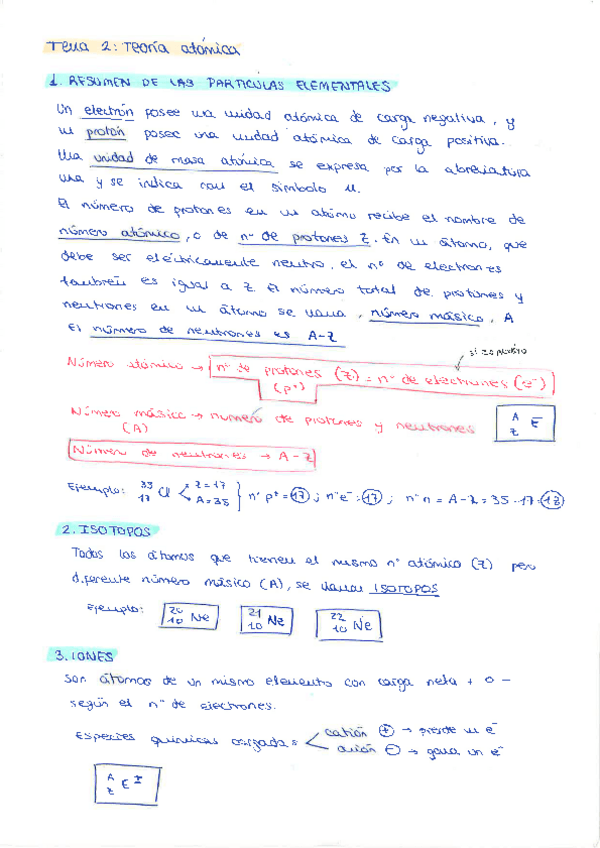 Tema 2: Teoría atómica
1. RESUMEN DE LAS PARTÍCULAS ELEMENTALES
Un electrón posee una unidad atómica de carga negativa, y
un protón posee una unidad atómica de carga positiva.
Una unidad de masa atómica se expresa por la abreviatura
uma y se indica con el símbolo u.
El número de protones en un átomo recibe el nombre de
número atómico, o de nº de protones Z. En un átomo, que
debe ser eléctricamente neutro, el nº de electrones
también es igual a Z. El número total de protones y
neutrones en un átomo se llama, número másico, A
El número de neutrones es A-Z
si es neutro
Número atómico → nº de protones (Z) = nº de electrones (e⁻)
(p⁺)
Número másico → número de protones y neutrones
(A)
A
Z E
Número de neutrones → A-Z
Ejemplo: 35 17 Cl Z=17 A=35 } nº p⁺ = 17 ; nº e⁻ = 17 ; nº n = A-Z = 35-17 = 18
2. ISOTOPOS
Todos los átomos que tienen el mismo nº atómico (Z) pero
diferente número másico (A), se llaman ISOTOPOS
Ejemplo: 20 10 Ne 21 10 Ne 22 10 Ne
3. IONES
Son átomos de un mismo elemento con carga neta + o -
según el nº de electrones.
Especies químicas cargadas catión + → pierde un e⁻
anión - → gana un e⁻
A
Z E ±